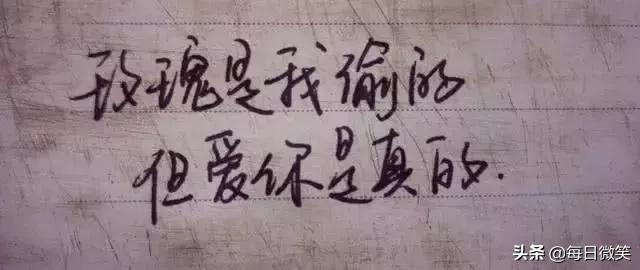 玫瑰是我偷的
但爱你是真的.
头条 @每日微笑